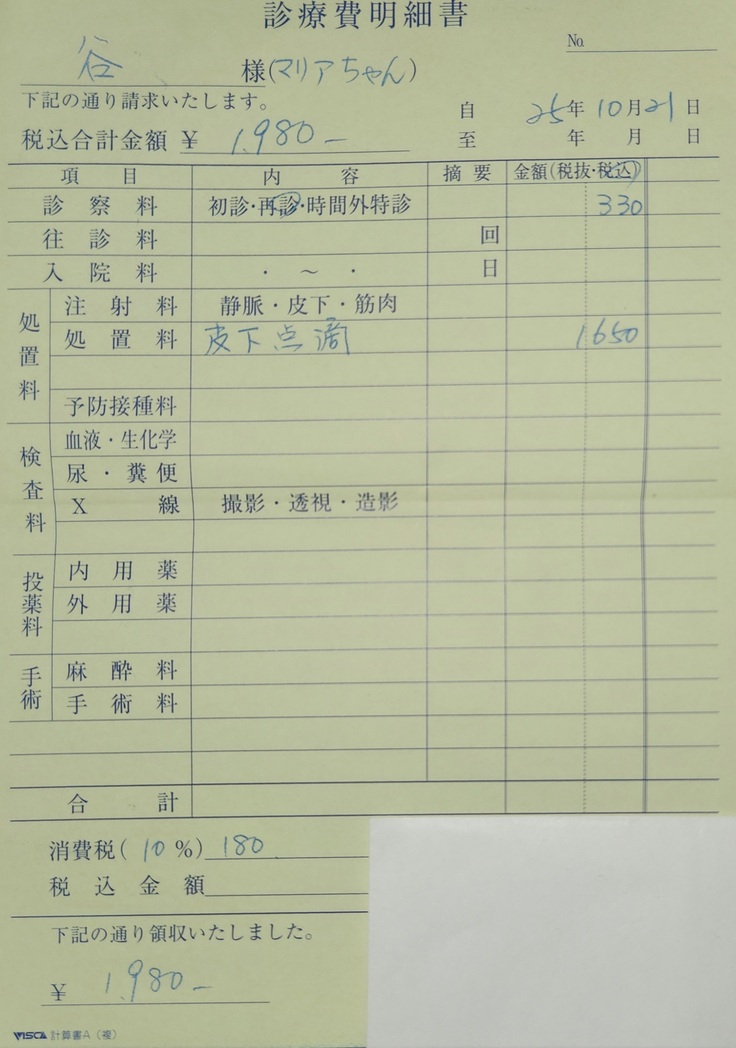 診療費明細書
No.
谷 様(マリアちゃん)
下記の通り請求いたします。
自 25年10月21日
税込合計金額 ¥ 1,980-
至 年 月 日
項目 内容 摘要 金額(税抜・税込)
診察料 初診・再診・時間外特診 330
往診料 回
入院料 ・ ~ ・ 日
処置料
注射料 静脈・皮下・筋肉
処置料 皮下点滴 1,650
予防接種料
検査料
血液・生化学
尿・糞便
X線 撮影・透視・造影
投薬料
内用薬
外用薬
手術
麻酔料
手術料
合計
消費税(10%) 180
税込金額
下記の通り領収いたしました。
¥ 1,980-
VISCA 計算書A(複)